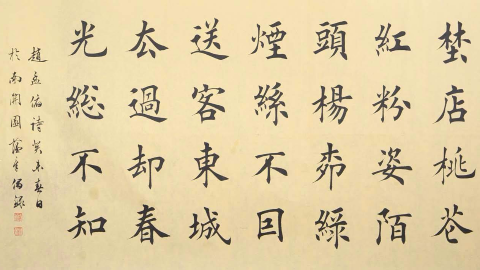 埜店桃花
紅粉姿陌
頭楊柳綠
煙絲不因
送客東城
去過却春
光総不知
趙孟俯詩癸未春日
於南開園偶錄